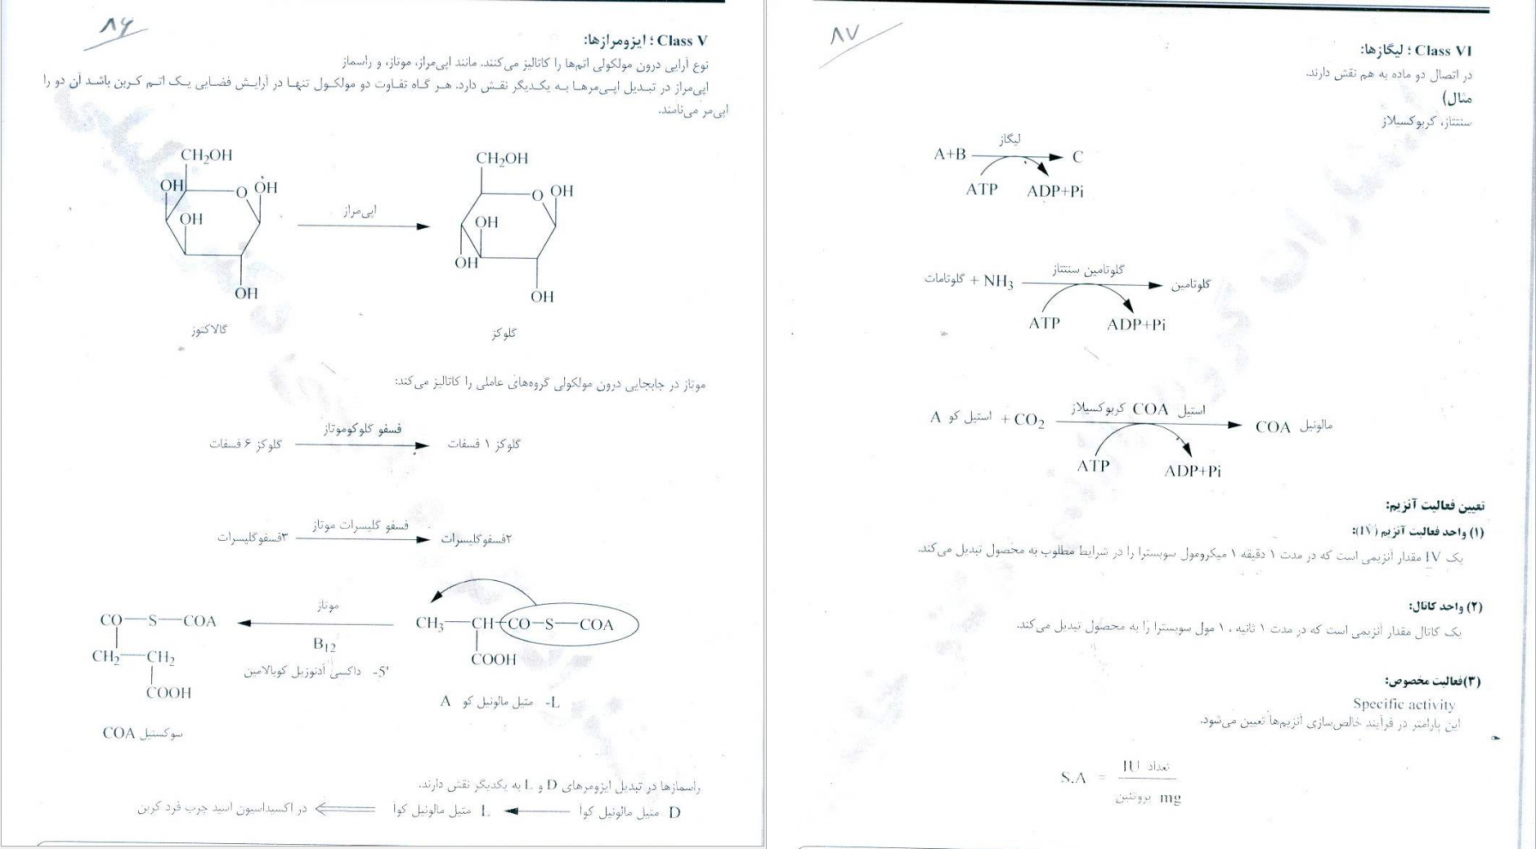 ۸۶
Class V ؛ ایزومرازها:
نوع آرایی درون مولکولی اتم‌ها را کاتالیز می‌کنند. مانند اپی‌مراز، موتاز، و راسماز
اپی‌مراز در تبدیل اپی‌مرها به یکدیگر نقش دارد. هر گاه تفاوت دو مولکول تنها در آرایش فضایی یک اتم کربن باشد آن دو را
اپی‌مر می‌نامند.
CH2OH
OH
O
OH
OH
OH
گالاکتوز
اپی‌مراز
CH2OH
O
OH
OH
OH
OH
گلوکز
موتاز در جابجایی درون مولکولی گروه‌های عاملی را کاتالیز می‌کند:
گلوکز ۶ فسفات
فسفو گلوکوموتاز
گلوکز ۱ فسفات
۳فسفوگلیسرات
فسفو گلیسرات موتاز
۲فسفوگلیسرات
CH3—CH—CO—S—COA
COOH
L- متیل مالونیل کو A
موتاز
B12
5'- داکسی آدنوزیل کوبالامین
CO—S—COA
CH2—CH2
COOH
سوکسنیل COA
راسمازها در تبدیل ایزومرهای D و L به یکدیگر نقش دارند.
D متیل مالونیل کوا
L متیل مالونیل کوا
در اکسیداسیون اسید چرب فرد کربن
۸۷
Class VI ؛ لیگازها:
در اتصال دو ماده به هم نقش دارند.
مثال)
سنتتاز، کربوکسیلاز
A+B
لیگاز
C
ATP
ADP+Pi
گلوتامات + NH3
گلوتامین سنتتاز
گلوتامین
ATP
ADP+Pi
استیل کو A + CO2
استیل COA کربوکسیلاز
مالونیل COA
ATP
ADP+Pi
تعیین فعالیت آنزیم:
(۱) واحد فعالیت آنزیم (IV):
یک IV مقدار آنزیمی است که در مدت ۱ دقیقه ۱ میکرومول سوبسترا را در شرایط مطلوب به محصول تبدیل می‌کند.
(۲) واحد کاتال:
یک کاتال مقدار آنزیمی است که در مدت ۱ ثانیه ، ۱ مول سوبسترا را به محصول تبدیل می‌کند.
(۳)فعالیت مخصوص:
Specific activity
این پارامتر در فرآیند خالص‌سازی آنزیم‌ها تعیین می‌شود.
S.A =
تعداد IU
mg پروتئین